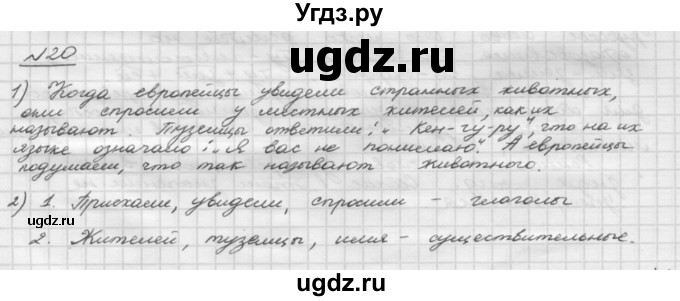 Угдз.ру
ugdz.ru
№20
1) Когда европейцы увидели странных животных,
они спросили у местных жителей, как их
называют. Туземцы ответили: „Кен-гу-ру", что на их
языке означало: „Я вас не понимаю". А европейцы
подумали, что так называют животного.
ugdz.ru
2) 1. Приехали, увидели, спросили – глаголы
2. Жителей, туземцы, имя – существительные.
ugdz.ru
ugdz.ru